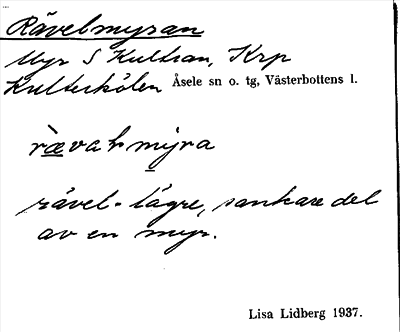 Rävelmyran
Myr S Kultran, Krp
Kulterkölen Åsele sn o. tg, Västerbottens l.
rævaḷ mỳra
rävel = lägre, sankare del
av en myr.
Lisa Lidberg 1937.